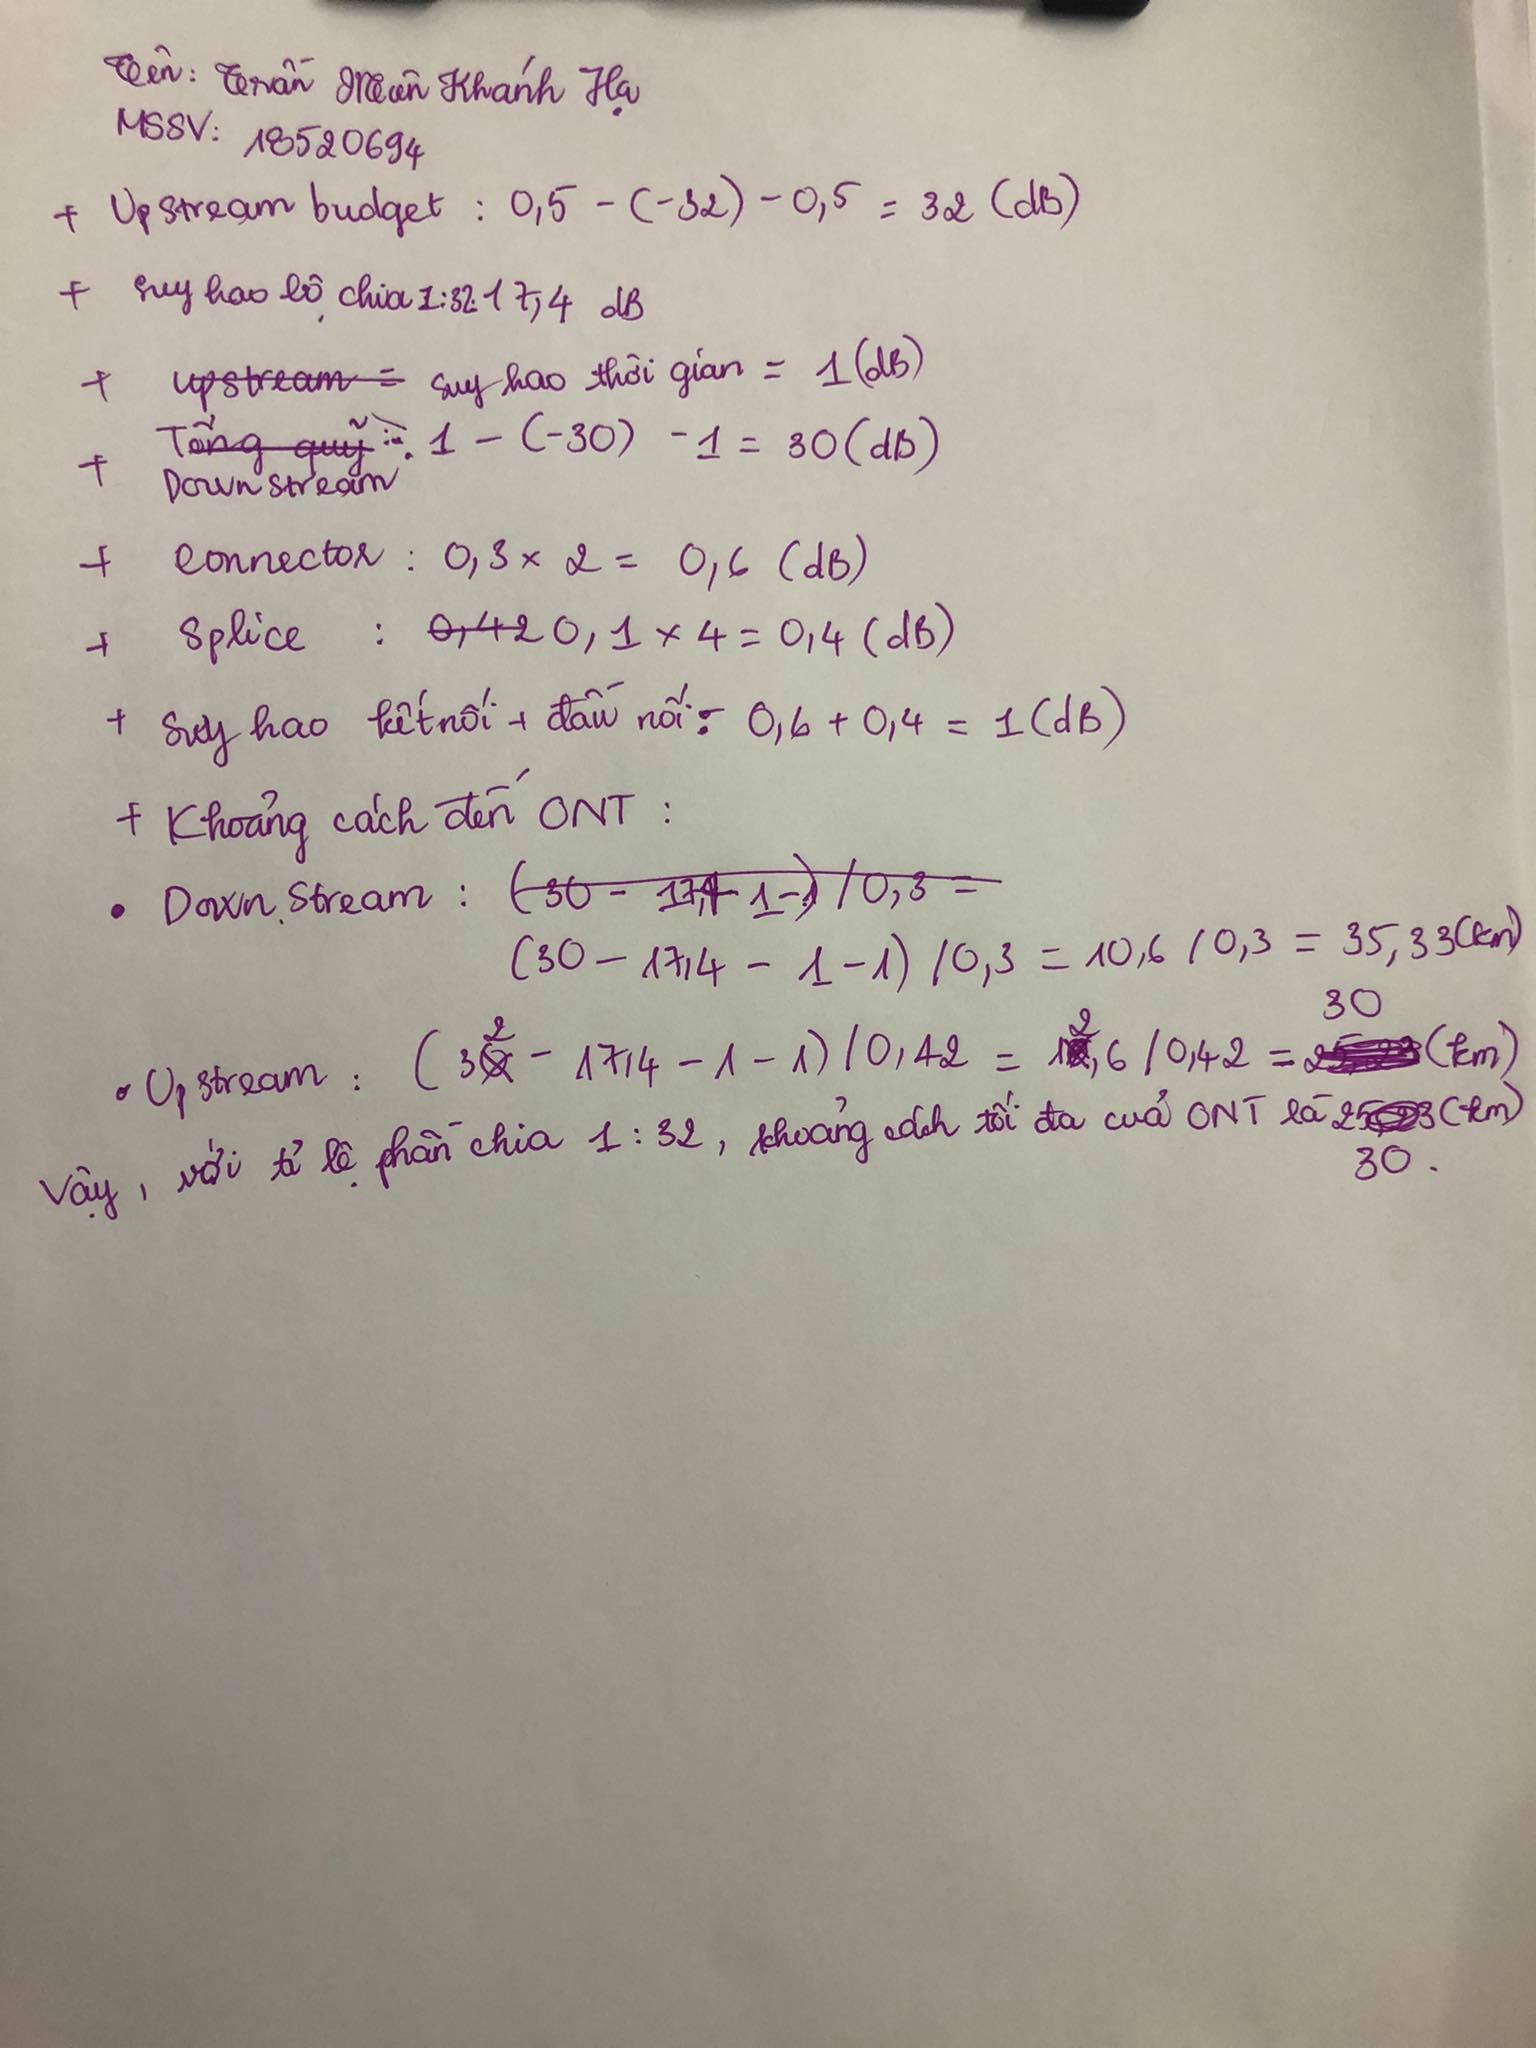 Tên: Trần Mẫn Khánh Hạ
MSSV: 18520694
+ Upstream budget : 0,5 - (-32) - 0,5 = 32 (dB)
+ Suy hao bộ chia 1:32: 17,4 dB
+ upstream = suy hao thời gian = 1 (dB)
+ Tổng quỹ : 1 - (-30) - 1 = 30 (dB)
Downstream
+ Connector : 0,3 × 2 = 0,6 (dB)
+ Splice : 0,42 0,1 × 4 = 0,4 (dB)
+ Suy hao kết nối + đấu nối: 0,6 + 0,4 = 1 (dB)
+ Khoảng cách đến ONT :
• Down stream : (30 - 17,4 - 1 - 1) / 0,3 =
(30 - 17,4 - 1 - 1) / 0,3 = 10,6 / 0,3 = 35,33 (km)
• Upstream : (32 - 17,4 - 1 - 1) / 0,42 = 12,6 / 0,42 = 30 (km)
Vậy, với tỉ lệ phần chia 1 : 32, khoảng cách tối đa của ONT là (km)
30.